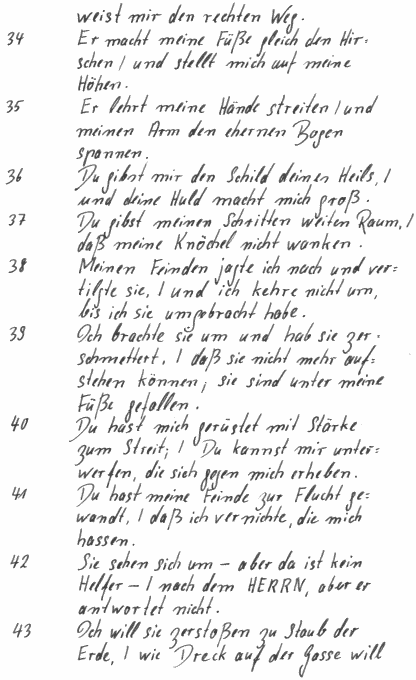 weist mir den rechten Weg.
34 Er macht meine Füße gleich den Hir=
schen / und stellt mich auf meine
Höhen.
35 Er lehrt meine Hände streiten / und
meinen Arm den ehernen Bogen
spannen.
36 Du gibst mir den Schild deines Heils, /
und deine Huld macht mich groß.
37 Du gibst meinen Schritten weiten Raum, /
daß meine Knöchel nicht wanken.
38 Meinen Feinden jagte ich nach und ver=
tilgte sie, / und ich kehre nicht um,
bis ich sie umgebracht habe.
39 Ich brachte sie um und hab sie zer=
schmettert, / daß sie nicht mehr auf=
stehen können; sie sind unter meine
Füße gefallen.
40 Du hast mich gerüstet mit Stärke
zum Streit; / Du kannst mir unter=
werfen, die sich gegen mich erheben.
41 Du hast meine Feinde zur Flucht ge=
wandt, / daß ich vernichte, die mich
hassen.
42 Sie sehen sich um – aber da ist kein
Helfer – / nach dem HERRN, aber er
antwortet nicht.
43 Ich will sie zerstoßen zu Staub der
Erde, / wie Dreck auf der Gasse will